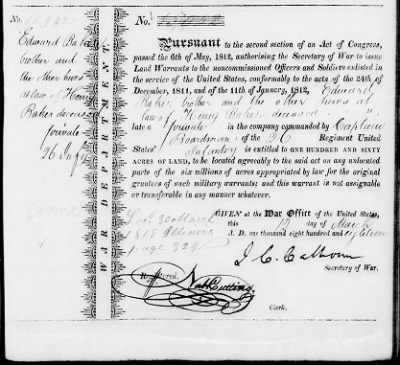 No. 15942
Edward Baker
brother and
the other heirs
at law of Henry
Baker deceased
private
26 Infy
WAR DEPARTMENT.
No.
PURSUANT to the second section of an Act of Congress,
passed the 6th of May, 1812, authorising the Secretary of War to issue
Land Warrants to the noncommissioned Officers and Soldiers enlisted in
the service of the United States, conformably to the acts of the 24th of
December, 1811, and of the 11th of January, 1812, Edward
Baker brother and the other heirs at
law of Henry Baker deceased
late a private in the company commanded by Captain
Boardman of the 26 Regiment United
States' Infantry is entitled to ONE HUNDRED AND SIXTY
ACRES OF LAND, to be located agreeably to the said act on any unlocated
parts of the six millions of acres appropriated by law for the original
grantees of such military warrants; and this warrant is not assignable
or transferable in any manner whatever.
GIVEN at the War Office of the United States,
this day of March
A. D. one thousand eight hundred and eighteen
Loc 30 March
1818 Illinois
page 324
J. C. Calhoun
Secretary of War.
Registered.
Nat Cutting
Clerk.